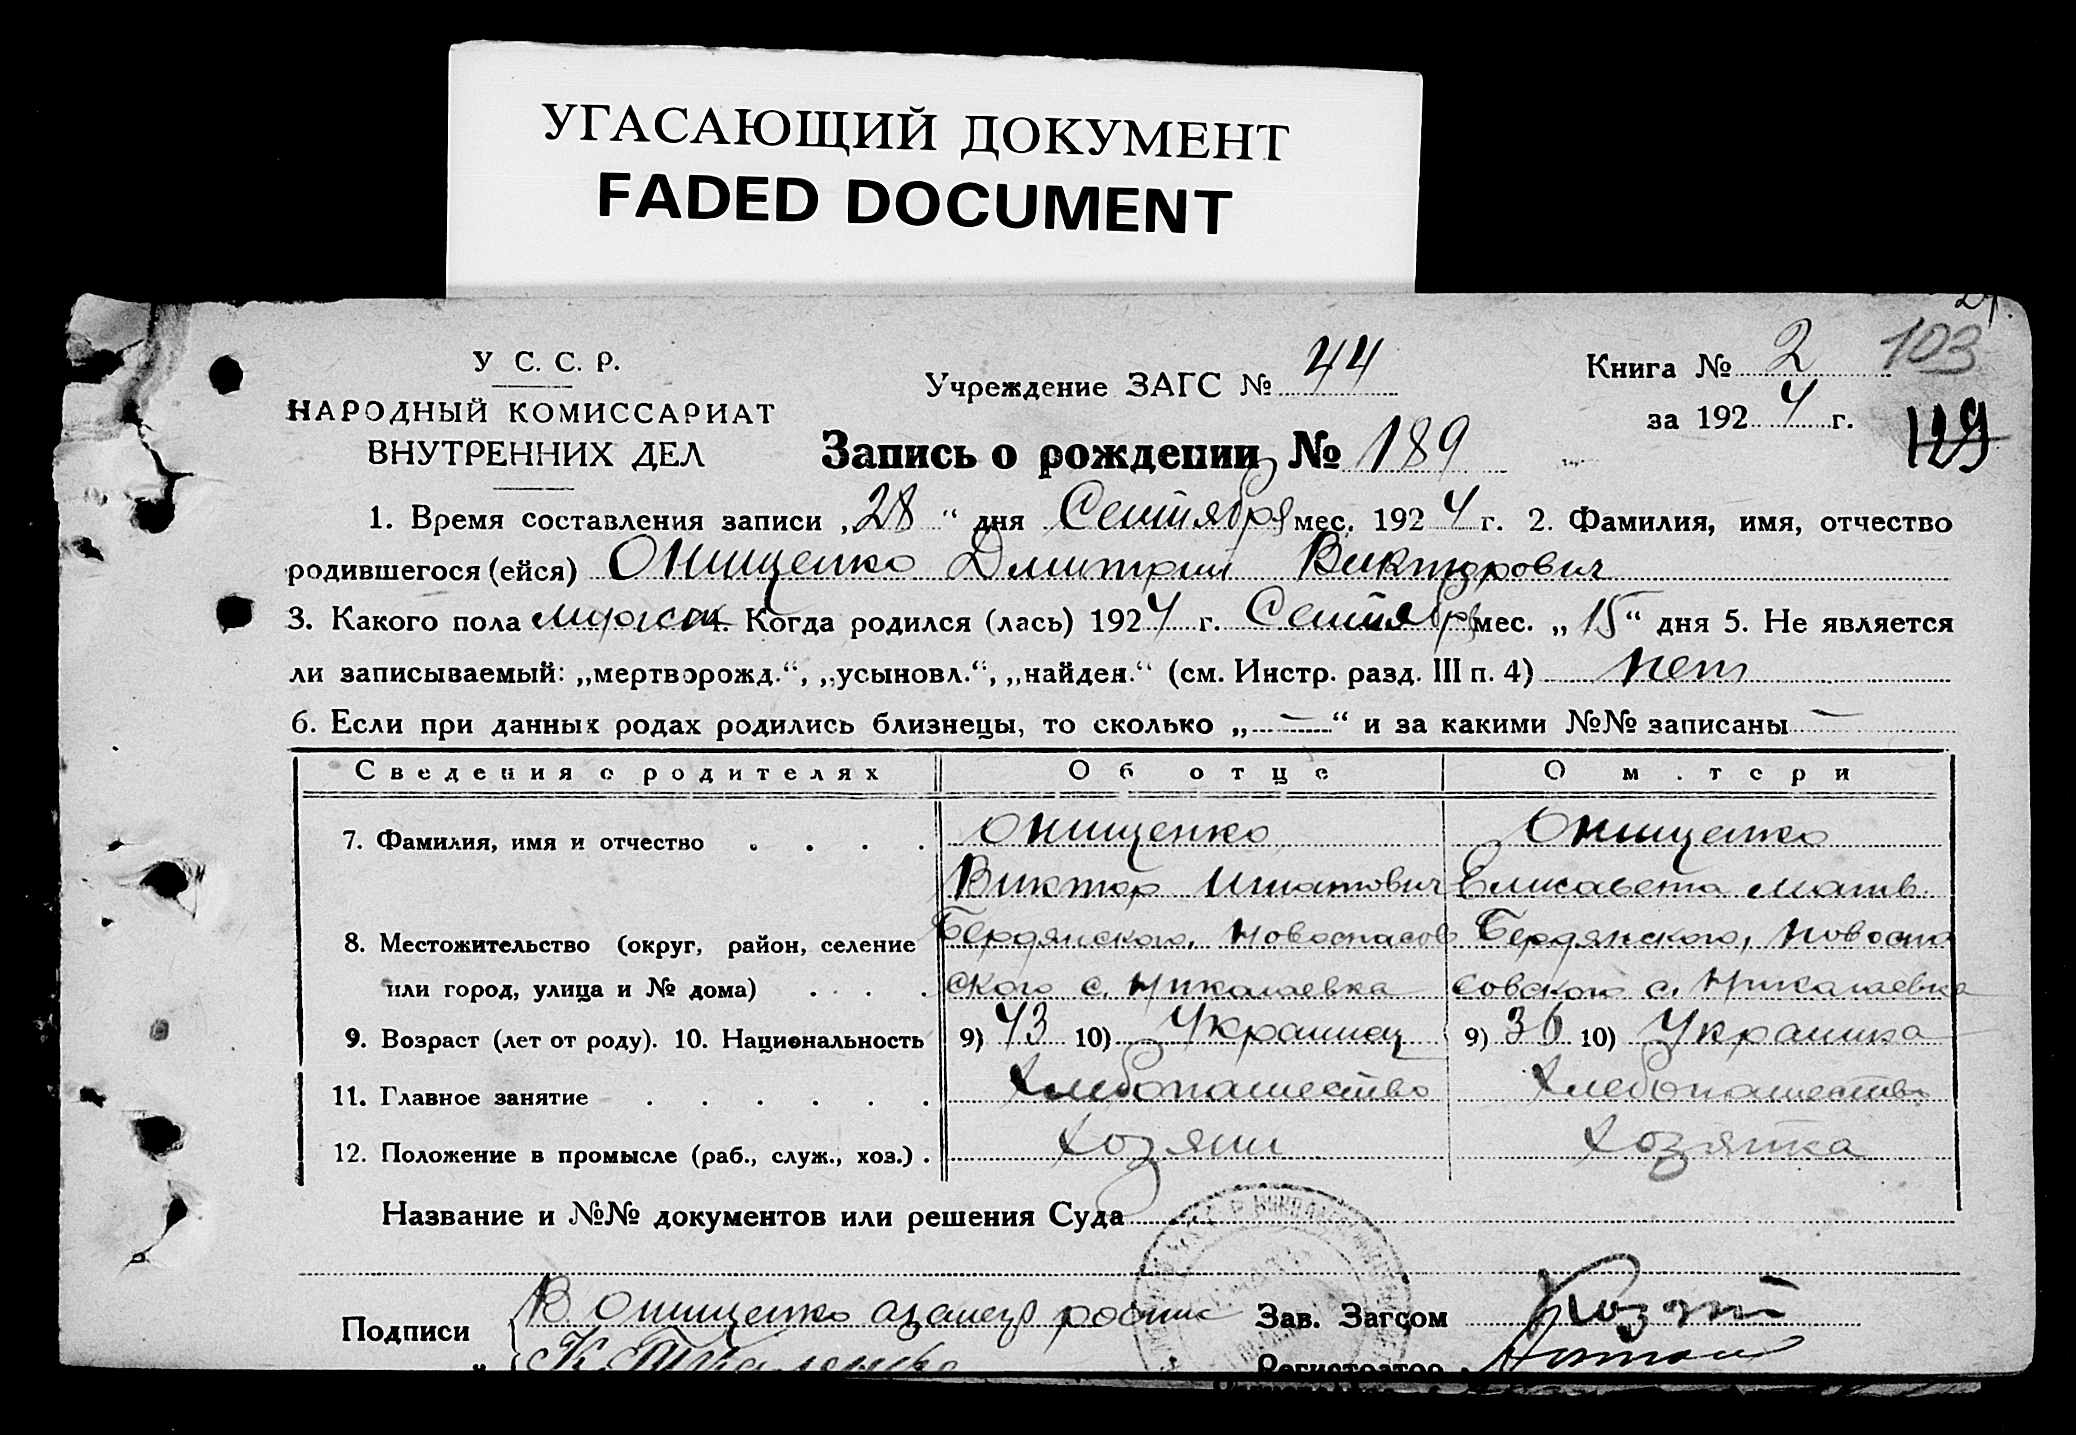 УГАСАЮЩИЙ ДОКУМЕНТ
FADED DOCUMENT
У С. С. Р.
НАРОДНЫЙ КОМИССАРИАТ
ВНУТРЕННИХ ДЕЛ
Учреждение ЗАГС № 44
Книга № 2 103
за 1924 г.
129
Запись о рождении № 189
1. Время составления записи „28“ дня Сентября мес. 1924 г. 2. Фамилия, имя, отчество
родившегося (ейся) Онищенко Дмитрий Викторович
3. Какого пола мужск 4. Когда родился (лась) 1924 г. Сентябр мес. „15“ дня 5. Не является
ли записываемый: „мертворожд.“, „усыновл.“, „найден.“ (см. Инстр. разд. III п. 4) нет
6. Если при данных родах родились близнецы, то сколько „—“ и за какими №№ записаны —
Сведения о родителях Об отце О м.тери
7. Фамилия, имя и отчество . . . . Онищенко Онищенко
Виктор Игнатович Елисавета Матв.
8. Местожительство (округ, район, селение Бердянского, Новоспасов Бердянского, Новоспа
или город, улица и № дома) . . . ского с. Николаевка совского с. Николаевка
9. Возраст (лет от роду). 10. Национальность 9) 43 10) Украинец 9) 36 10) Украинка
11. Главное занятие . . . . . . Хлебопашество Хлебопашество
12. Положение в промысле (раб., служ., хоз.) . Хозяин Хозяйка
Название и №№ документов или решения Суда
Подписи В Онищенко Зав. Загсом
К. Регистратор